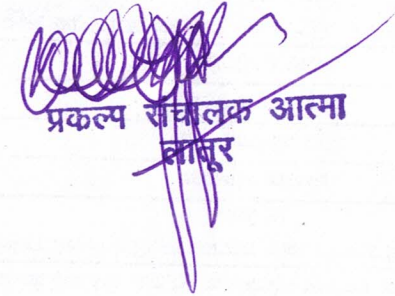 प्रकल्प संचालक आत्मा
लातूर